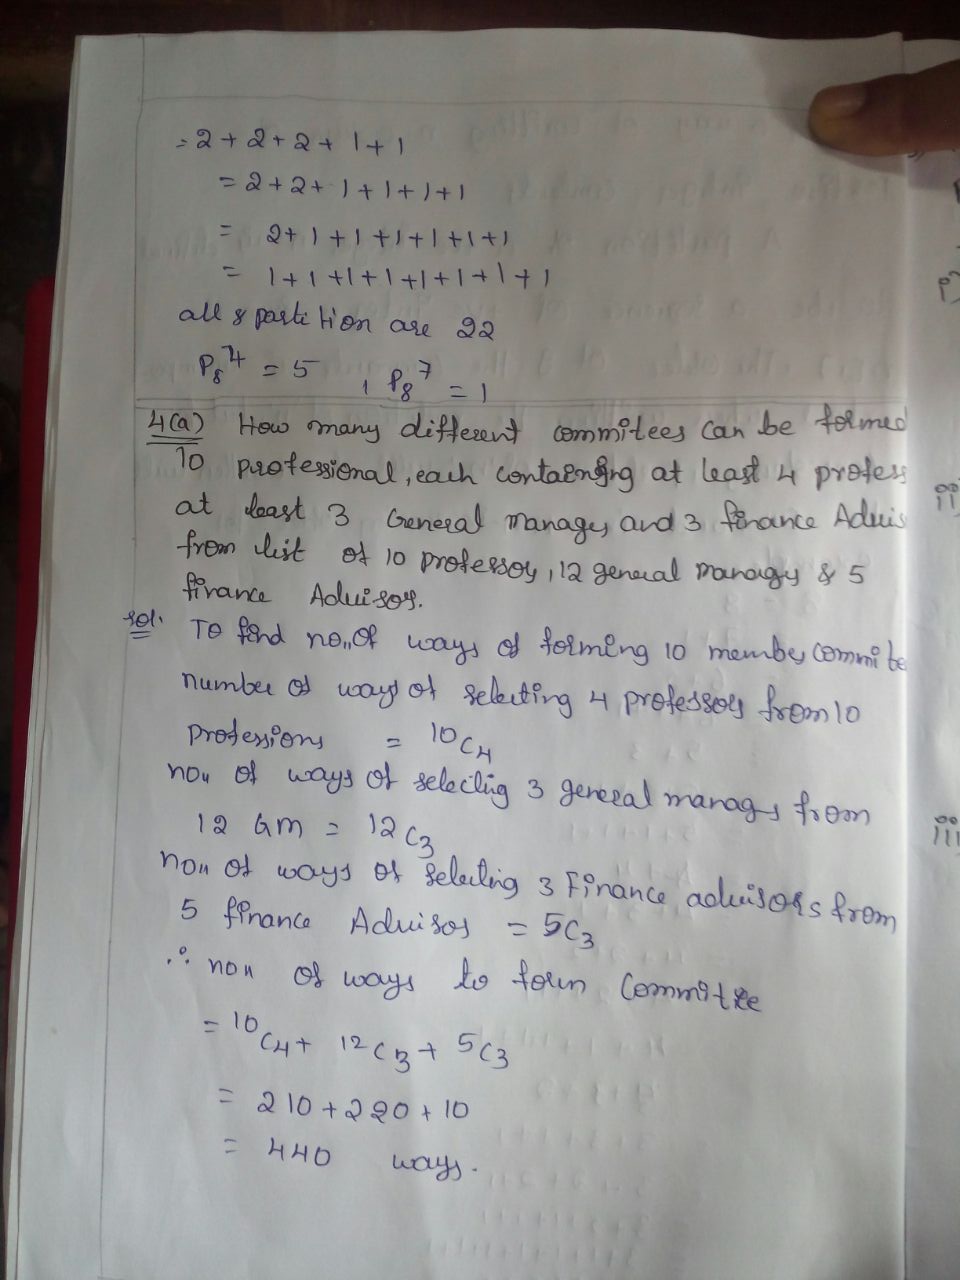 = 2 + 2 + 2 + 1 + 1
= 2 + 2 + 1 + 1 + 1 + 1
= 2 + 1 + 1 + 1 + 1 + 1 + 1
= 1 + 1 + 1 + 1 + 1 + 1 + 1 + 1
all 8 partition are 22
P₈⁴ = 5 , P₈⁷ = 1
4(a) How many different commitees can be formed
10 professional, each containing at least 4 profess
at least 3 General manages and 3 finance Advis
from list of 10 professors, 12 general managers & 5
finance Advisors.
sol. To find no,, of ways of forming 10 members commite
number of ways of selecting 4 professors from 10
professions = 10C4
no,, of ways of selecting 3 general manags from
12 GM = 12C3
no,, of ways of selecting 3 Finance advisors from
5 finance Advisos = 5C3
∴ no,, of ways to form Committee
= 10C4 + 12C3 + 5C3
= 210 + 220 + 10
= 440 ways.
i)
ii
iii